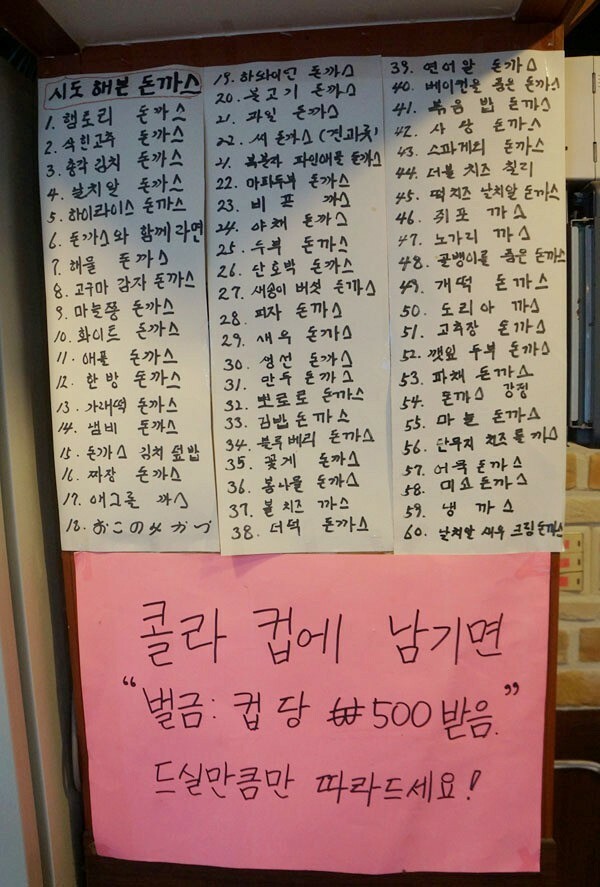 시도 해본 돈까스
1. 햄토리 돈까스
2. 삭힌고추 돈까스
3. 총각김치 돈까스
4. 날치알 돈까스
5. 하이라이스 돈까스
6. 돈까스와 함께 라면
7. 해물 돈까스
8. 고구마 감자 돈까스
9. 마늘쫑 돈까스
10. 화이트 돈까스
11. 애플 돈까스
12. 한방 돈까스
13. 가래떡 돈까스
14. 냄비 돈까스
15. 돈까스 김치 덮밥
16. 짜장 돈까스
17. 에그롤 까스
18. おこのみかつ
19. 하와이안 돈까스
20. 불고기 돈까스
21. 파일 돈까스
22. 씨 돈까스 (견과류)
21. 복분자 파인애플 돈까스
22. 마파두부 돈까스
23. 비프 까스
24. 야채 돈까스
25. 두부 돈까스
26. 단호박 돈까스
27. 새송이 버섯 돈까스
28. 피자 돈까스
29. 새우 돈까스
30. 생선 돈까스
31. 만두 돈까스
32. 뽀로로 돈까스
33. 김밥 돈까스
34. 블루베리 돈까스
35. 꽃게 돈까스
36. 콩나물 돈까스
37. 볼 치즈 까스
38. 더덕 돈까스
39. 연어알 돈까스
40. 베이컨을 품은 돈까스
41. 볶음밥 돈까스
42. 사랑 돈까스
43. 스파게티 돈까스
44. 더블 치즈 칠리
45. 떡치즈 날치알 돈까스
46. 쥐포 까스
47. 노가리 까스
48. 골뱅이를 품은 돈까스
49. 개떡 돈까스
50. 도리아 까스
51. 고추장 돈까스
52. 깻잎 두부 돈까스
53. 파채 돈까스
54. 돈까스 강정
55. 마늘 돈까스
56. 단무지 치즈롤 까스
57. 어묵 돈까스
58. 미소 돈까스
59. 냉 까스
60. 날치알 새우 크림돈까스
콜라 컵에 남기면
“벌금: 컵당 ₩500 받음.”
드실만큼만 따라드세요!